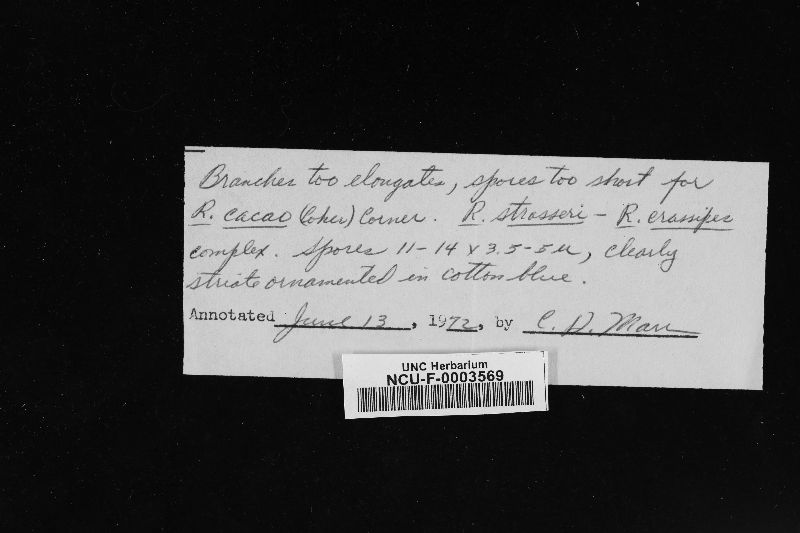 Branches too elongate, spores too short for
R. cacao (Coker) Corner. R. strasseri - R. crassipes
complex. Spores 11-14 x 3.5-5 u, clearly
striate ornamented in cotton blue.
Annotated June 13, 1972, by C. D. Marr
UNC Herbarium
NCU-F-0003569